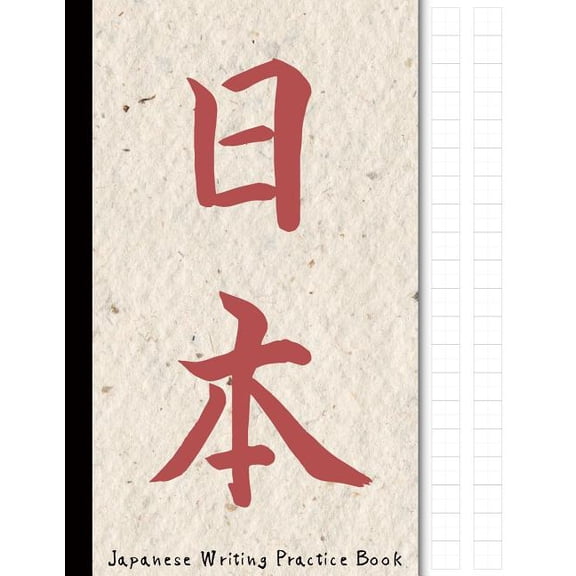 日本
Japanese Writing Practice Book